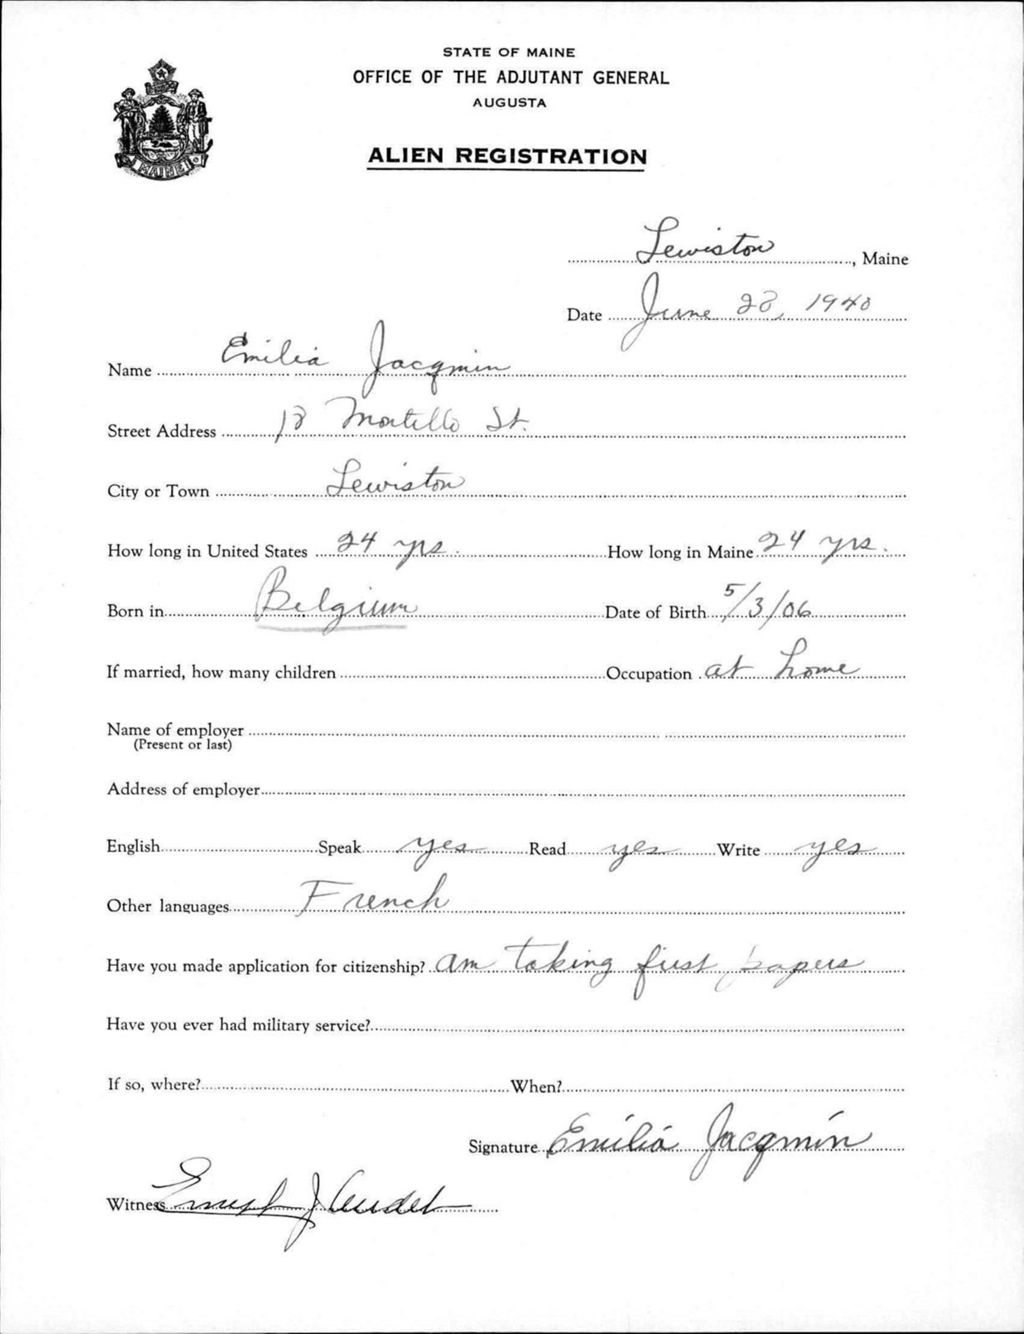 STATE OF MAINE
OFFICE OF THE ADJUTANT GENERAL
AUGUSTA
ALIEN REGISTRATION
MAINE
Lewiston, Maine
Date June 28, 1940
Name Emilia Jacqmin
Street Address 18 Montello St.
City or Town Lewiston
How long in United States 24 yrs. How long in Maine 24 yrs.
Born in Belgium Date of Birth 5/3/06
If married, how many children Occupation at home
Name of employer
(Present or last)
Address of employer
English Speak yes Read yes Write yes
Other languages French
Have you made application for citizenship? am taking first papers
Have you ever had military service?
If so, where? When?
Signature Emilia Jacqmin
Witness Ernest J. Audet